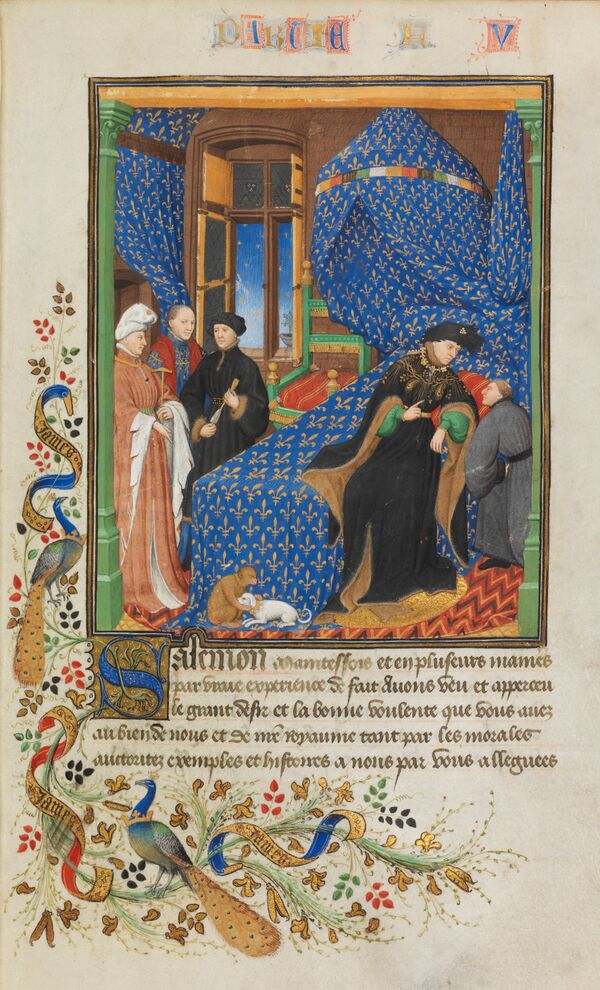 Salemon Maintessois et en pluseurs manies
par vraie experience de fait Avons veu et apperceu
le grant desir et la bonne voulente que vous avez
au bien de nous et de nre royaume tant par les morales
auctoritez exemples et histoires a nous par vous alleguees